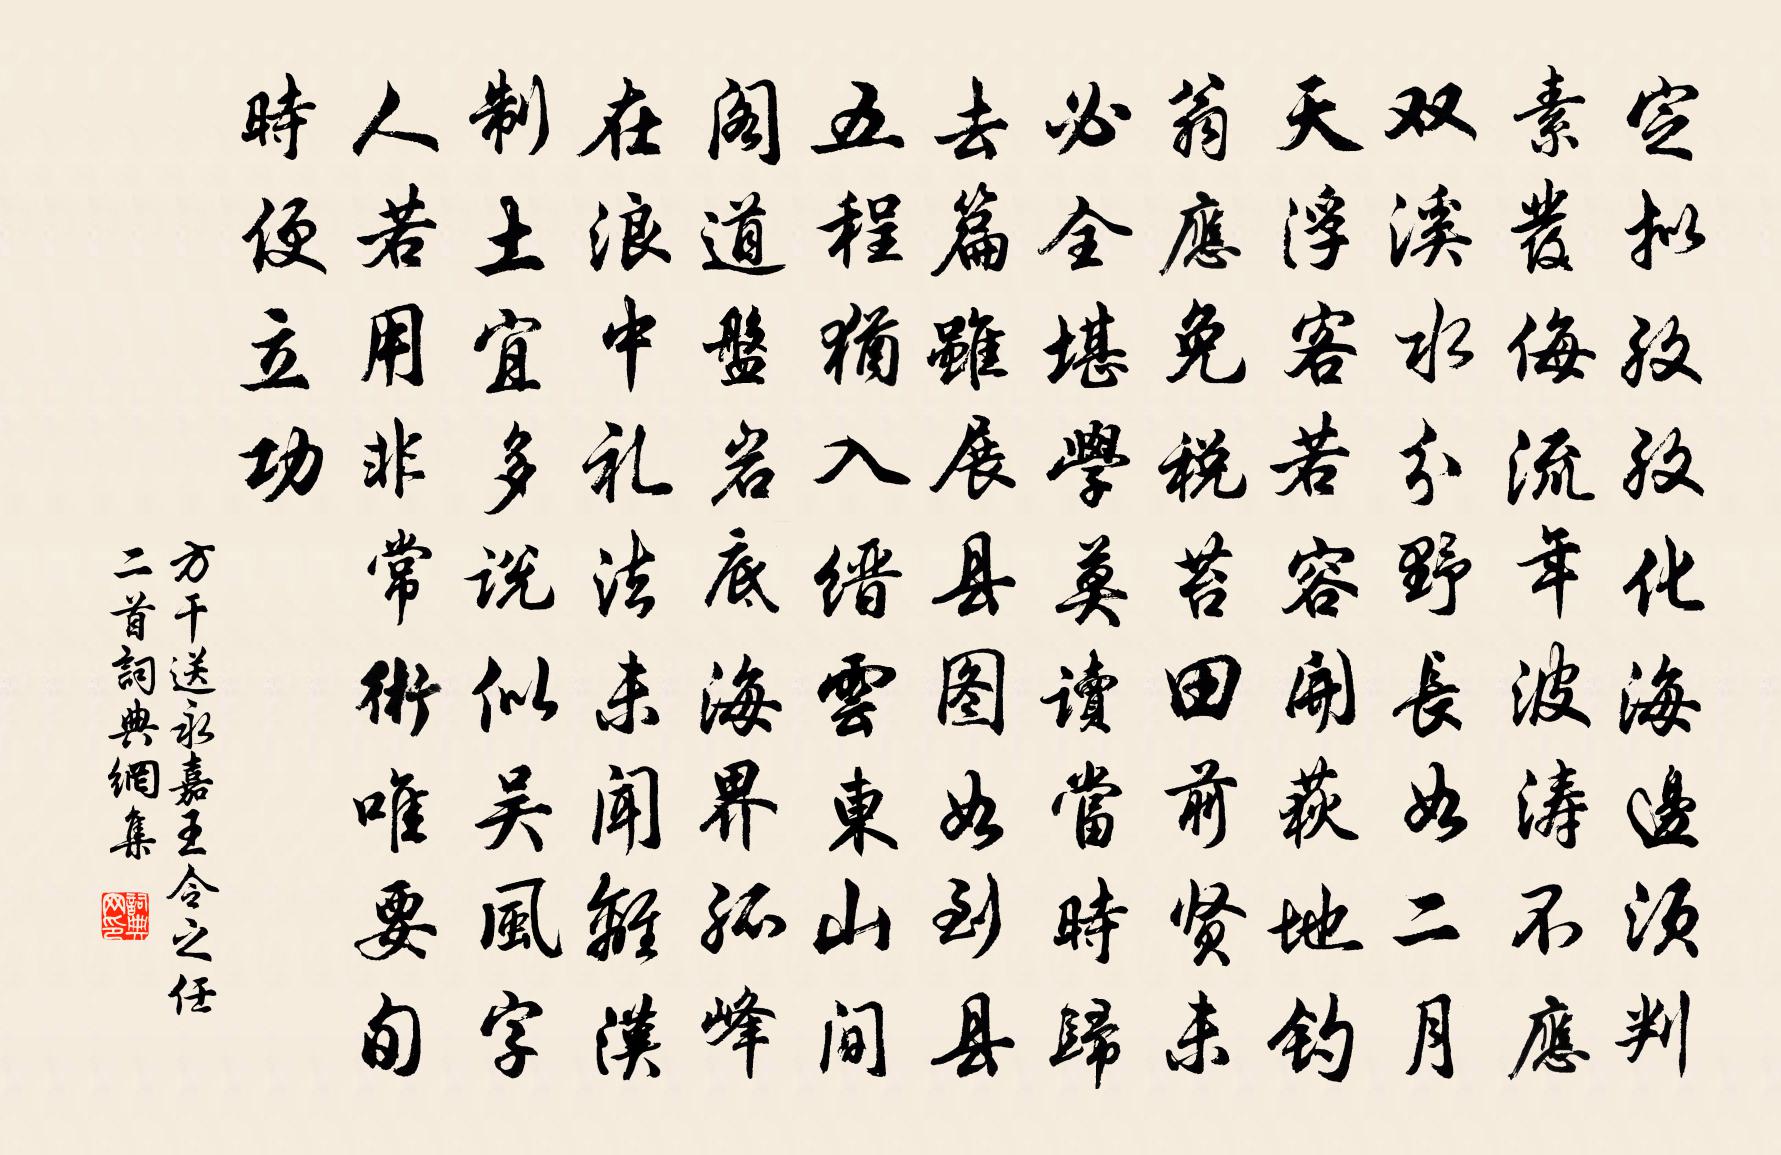 定拟孜孜化海邊须判
素髮侮流年波涛不應
双溪水分野長如二月
天浮客若容開荻地钓
翁應免税苔田前贤未
必全堪學莫讀當時歸
去篇雖展县图如到县
五程猶入缙雲東山间
阁道盤岩底海界孤峰
在浪中礼法未闻離漢
制土宜多说似吴風字
人若用非常術唯要旬
時便立功
方干送永嘉王令之任
二首詞典網集
詞典网印